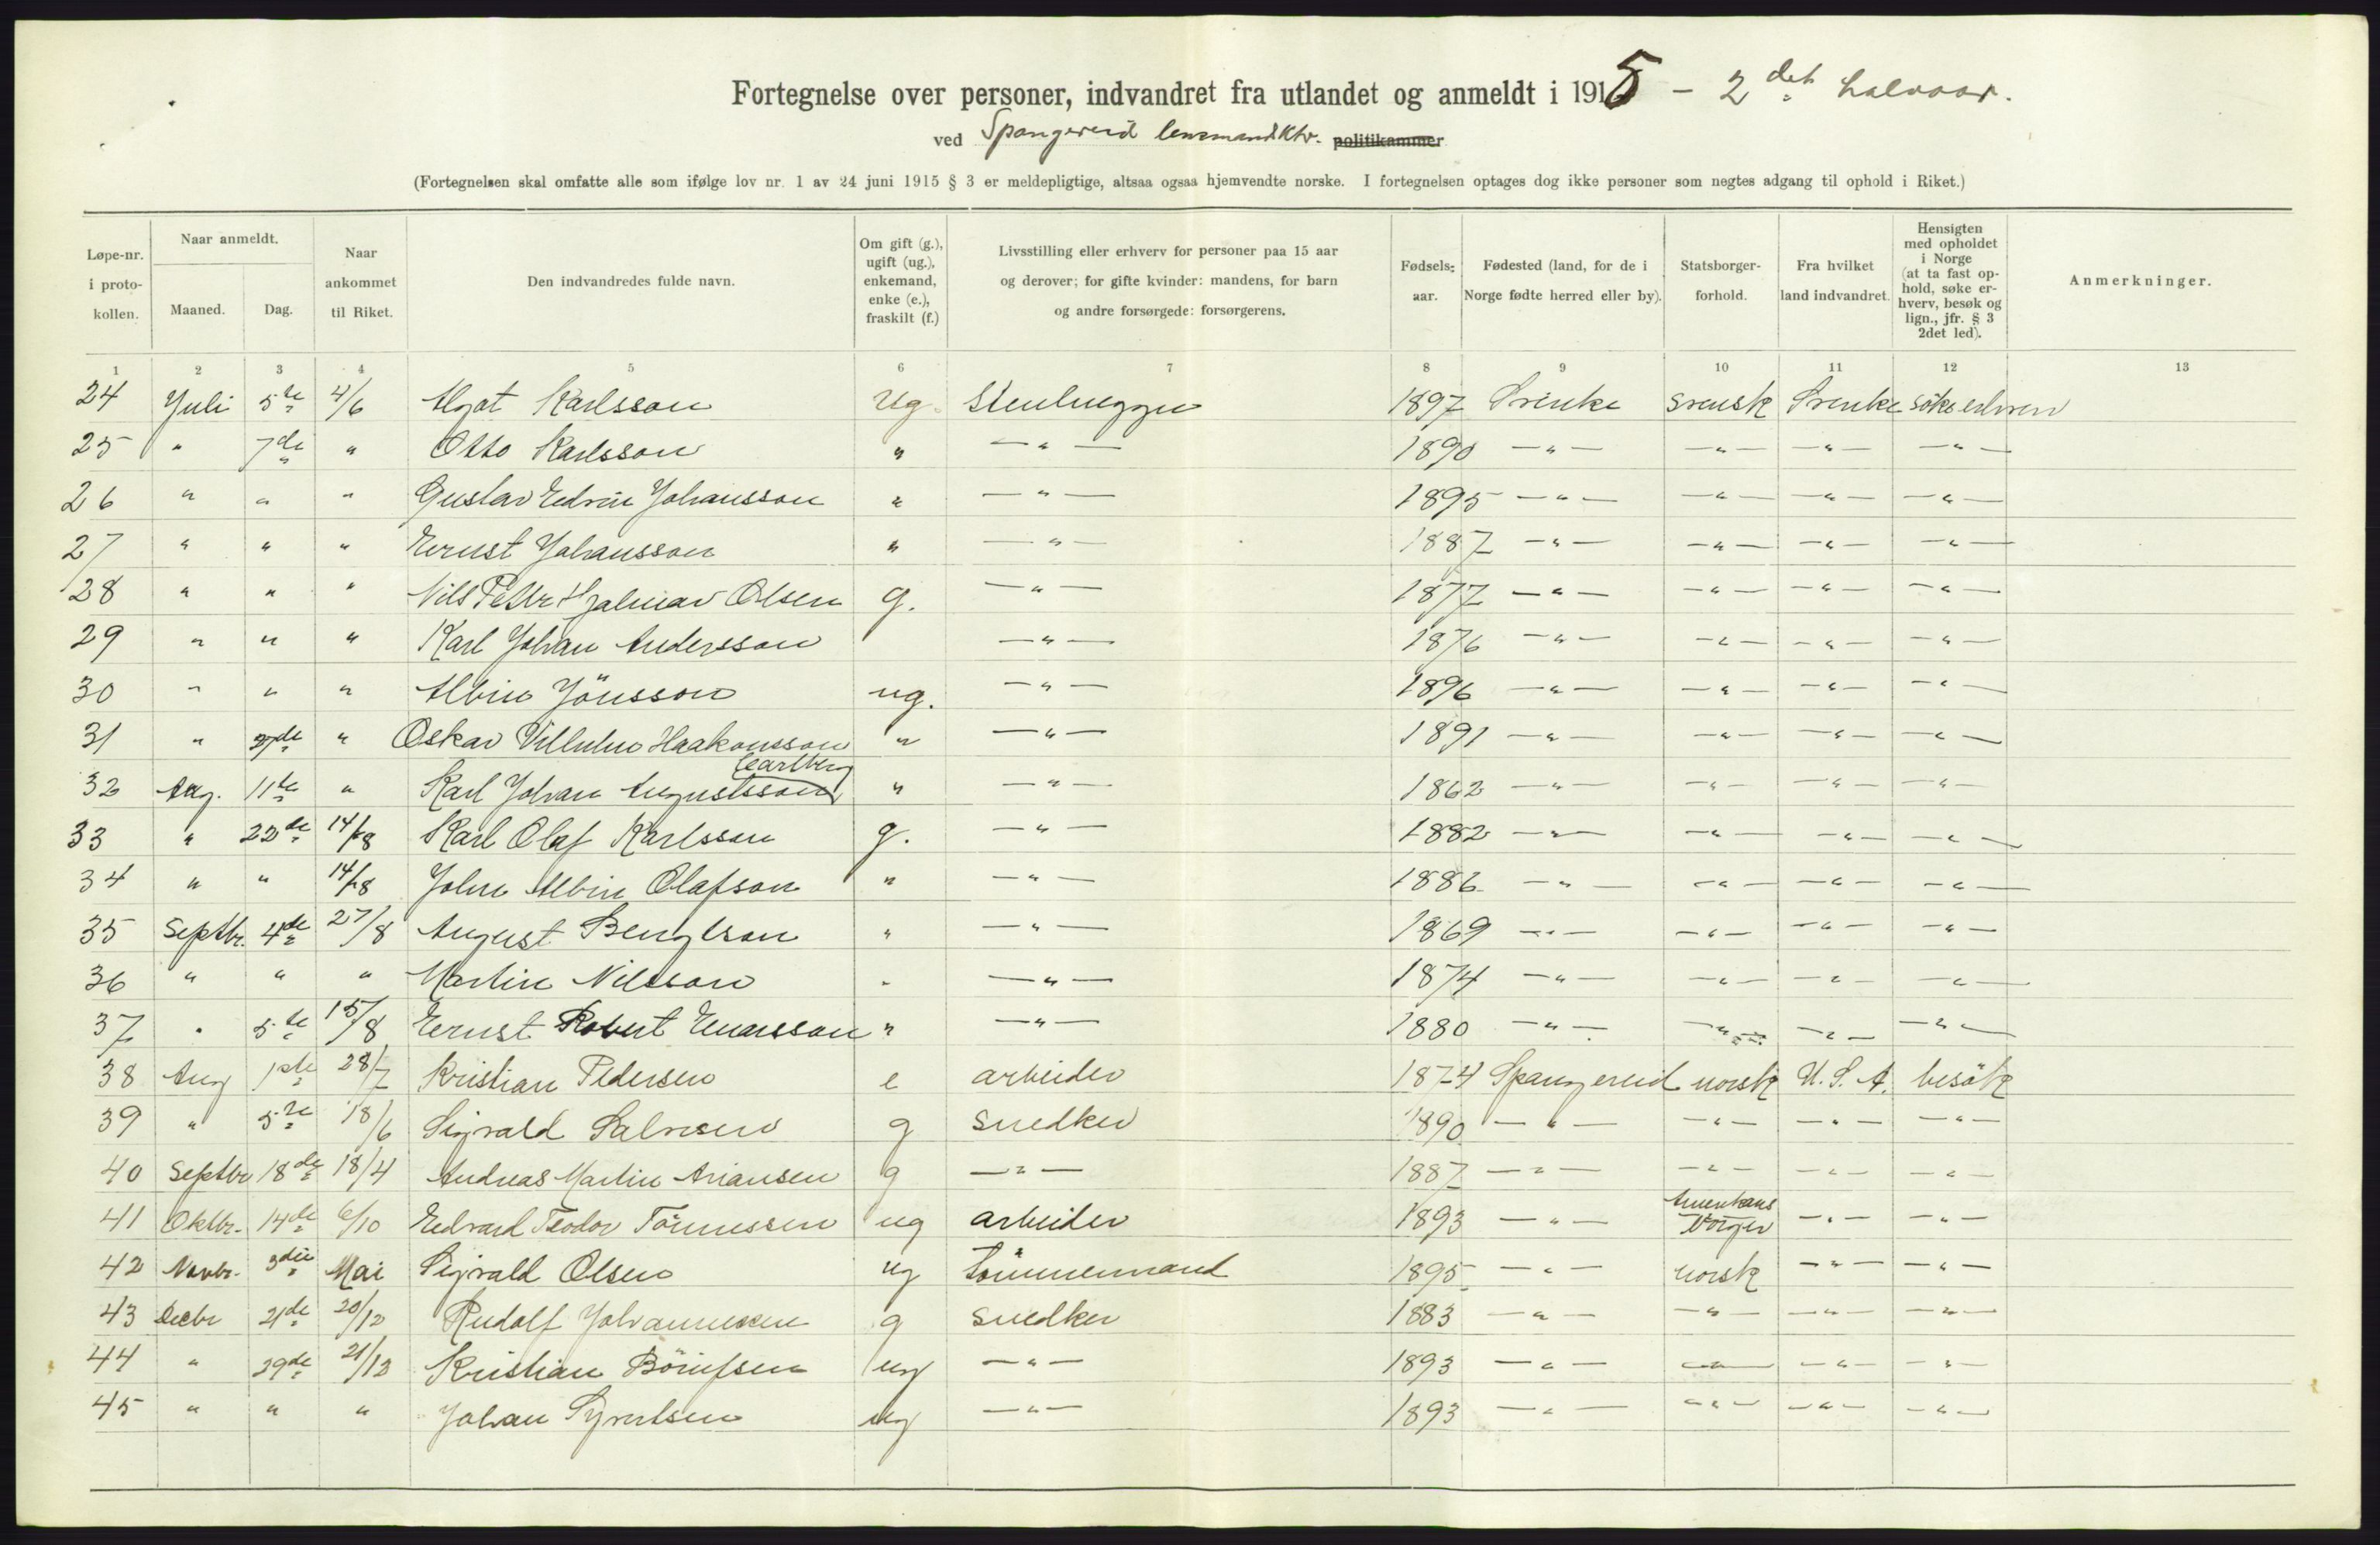 Fortegnelse over personer, indvandret fra utlandet og anmeldt i 1915 – 2det halvaar.
ved Spangereid lensmandsktr. politikammer
(Fortegnelsen skal omfatte alle som ifølge lov nr. 1 av 24 juni 1915 § 3 er meldepligtige, altsaa ogsaa hjemvendte norske. I fortegnelsen optages dog ikke personer som negtes adgang til ophold i Riket.)
Løpe-nr. i proto-kollen. Naar anmeldt. Maaned. Dag. Naar ankommet til Riket. Den indvandredes fulde navn. Om gift (g.), ugift (ug.), enkemand, enke (e.), fraskilt (f.) Livsstilling eller erhverv for personer paa 15 aar og derover; for gifte kvinder: mandens, for barn og andre forsørgede: forsørgerens. Fødsels-aar. Fødested (land, for de i Norge fødte herred eller by). Statsborger-forhold. Fra hvilket land indvandret. Hensigten med opholdet i Norge (at ta fast op-hold, søke er-hverv, besøk og lign., jfr. § 3 2det led). Anmerkninger.
1 2 3 4 5 6 7 8 9 10 11 12 13
24 Juli 5te 4/6 Algot Karlsson Ug. Stenhugger 1897 Sverike svensk Sverike söke erhverv
25 " 7de " Otto Karlsson " —"— 1890 —"— —"— —"— —"—
26 " " " Gustav Edvin Johansson " —"— 1895 —"— —"— —"— —"—
27 " " " Ernst Johansson " —"— 1887 —"— —"— —"— —"—
28 " " " Nils Petter Hjalmar Olsen g. —"— 1877 —"— —"— —"— —"—
29 " " " Karl Johan Andersson —"— 1876 —"— —"— —"— —"—
30 " " " Albin Jönsson ug. —"— 1896 —"— —"— —"— —"—
31 " 27de " Oskar Vilhelm Haakonsson " —"— 1891 —"— —"— —"— —"—
Carlberg
32 Aug. 11te " Karl Johan Augustsson " —"— 1862 —"— —"— —"— —"—
33 " 22de 14/8 Karl Olaf Karlsson g. —"— 1882 —"— —"— —"— —"—
34 " " 14/8 John Albin Olafson " —"— 1886 —"— —"— —"— —"—
35 Septbr. 4de 27/8 August Bengtson " —"— 1869 —"— —"— —"— —"—
36 " " " Martin Nilsson " —"— 1874 —"— —"— —"— —"—
37 " 5te 15/8 Ernst Robert Enarsson " —"— 1880 —"— —"— —"— —"—
38 Aug 1ste 28/7 Kristian Pedersen e arbeider 1874 Spangereid norsk U.S.A. besök
39 " 5te 18/6 Sigvald Salvesen g snedker 1890 —"— —"— —"— —"—
40 Septbr 18de 18/4 Andreas Martin Ariansen g —"— 1887 —"— —"— —"— —"—
41 Oktbr. 14de 6/10 Edvard Teodor Tönnessen ug arbeider 1893 —"— Amerikans borger —"— —"—
42 Novbr. 3die Mai Sigvald Olsen ug tömmermand 1895 —"— norsk —"— —"—
43 Decbr 21de 20/12 Rudolf Johannessen g snedker 1883 —"— —"— —"— —"—
44 " 29de 21/12 Kristian Börufsen ug —"— 1893 —"— —"— —"— —"—
45 " " " Johan Syvertsen ug —"— 1893 —"— —"— —"— —"—